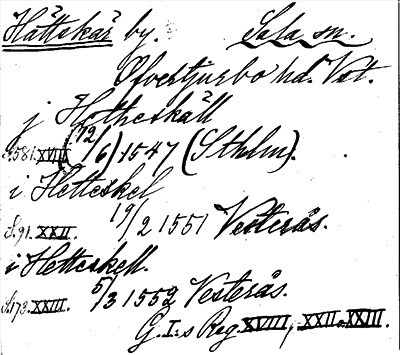 Hättskär by. Sala sn.
Øfvertjurbo hd. Vst.
j Hotheskäll
S.581.XVIII (12/6) 1547 (Sthlm).
i Hetteskel
S.91.XXII. 19/2 1551 Vesterås.
i Hetteskell.
S.173.XXIII. 5/3 1552 Vesterås.
G.I:s Reg. XVIII, XXII o. XXIII.